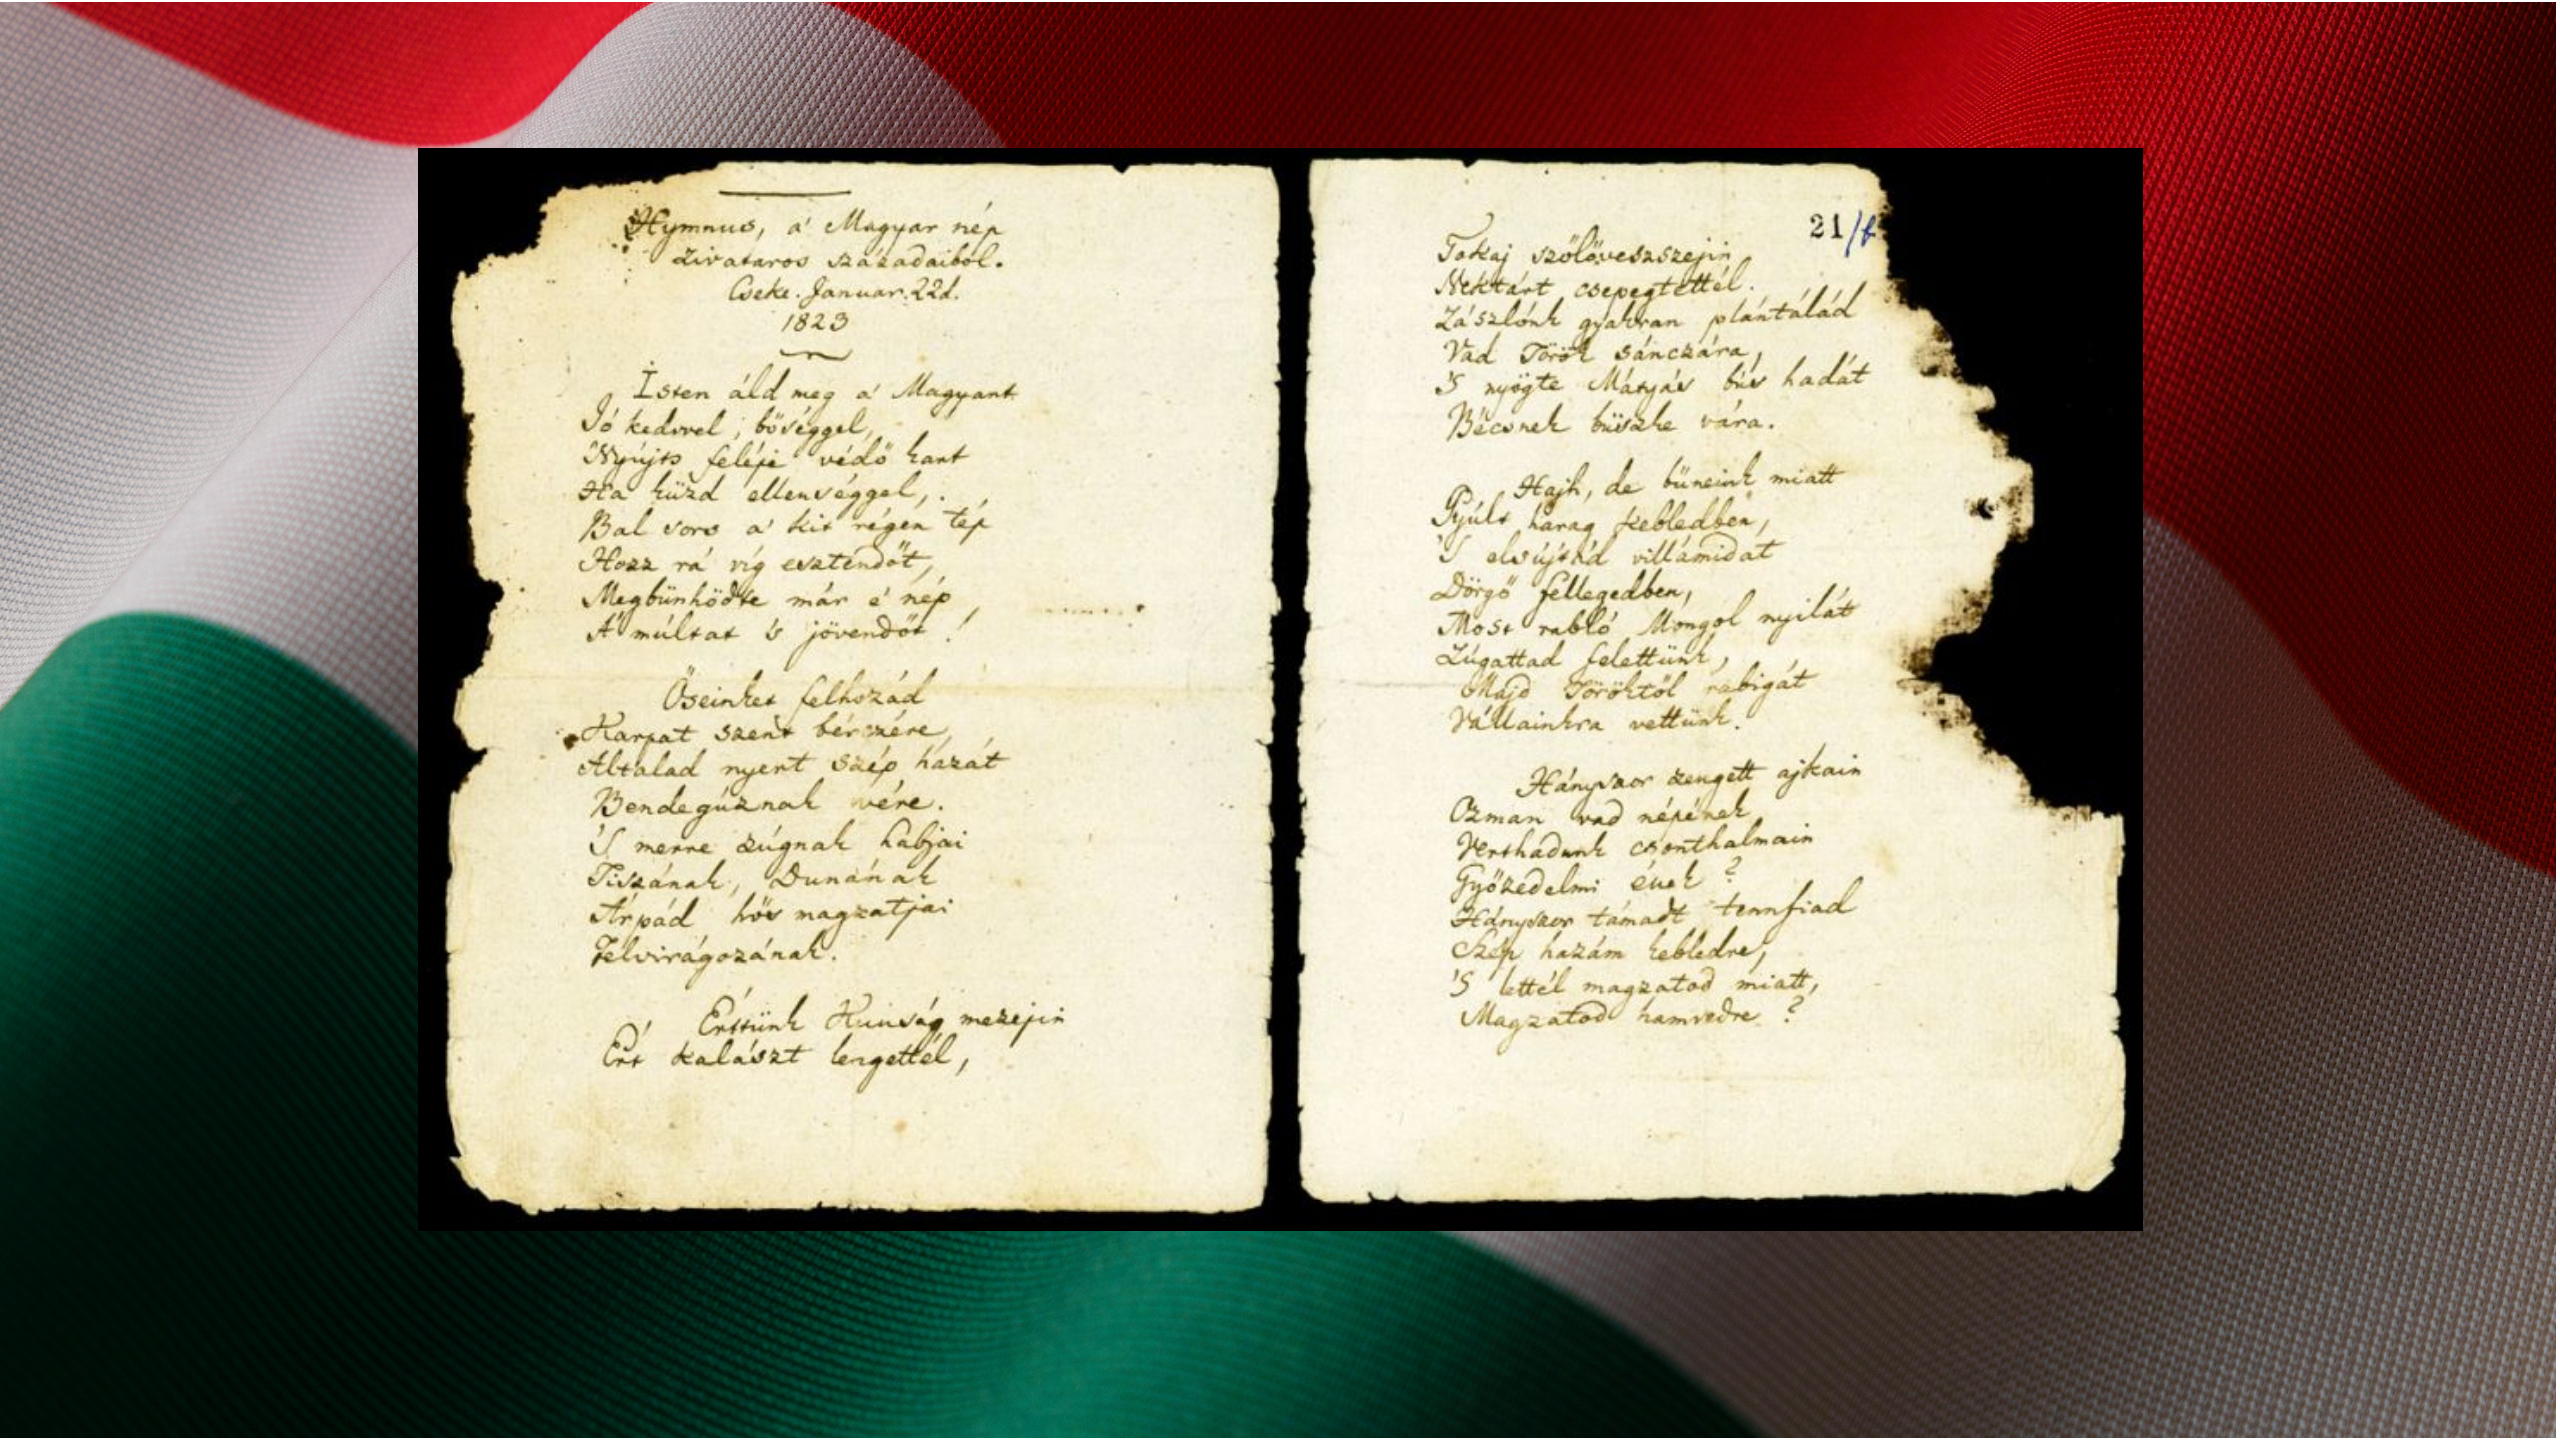 Hymnus, a' Magyar nép
zivataros századaiból.
Cseke. Januar. 22d.
1823
Isten áld meg a' Magyart
Jó kedvvel, bőséggel,
Nyújts feléje védő kart
Ha küzd ellenséggel,
Bal sors a' kit régen tép
Hozz rá víg esztendőt,
Megbünhödte már e' nép
A' múltat 's jövendőt!
Őseinket felhozád
Karpat szent bérczére,
Általad nyert szép hazát
Bendegúznak vére.
'S merre zúgnak habjai
Tiszának, Dunának
Árpád hős magzatjai
Felvirágozának.
Értünk Kunság mezejin
Ért kalászt lengettél,
21/
Tokaj szőlőveszszejin
Nektárt csepegtettél.
Zászlónk gyakran plántálád
Vad Török sánczára,
'S nyögte Mátyás bús hadát
Bécsnek büszke vára.
Hajh, de bűneink miatt
Gyúlt harag kebledben,
'S elsújtád villámidat
Dörgő fellegedben,
Most rabló Mongol nyilát
Zúgattad felettünk,
Majd Töröktől rabigát
Vállainkra vettünk.
Hányszor zengett ajkain
Ozman vad népének
Vert hadunk csonthalmain
Győzedelmi ének?
Hányszor támadt tennfiad
Szép hazám kebledre,
'S lettél magzatod miatt,
Magzatod hamvedre?